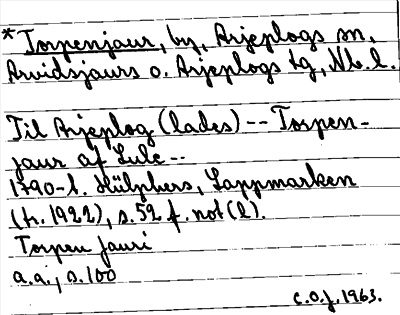 * Torpenjaur, by, Arjeplogs sn,
Arvidsjaurs o. Arjeplogs tg, Nb. l.
Til Arjeplog (lades) -- Torpen-
jaur af Lule --
1790-t. Hülphers, Lappmarken
(tr. 1922), s. 52 f. not (2).
Torpen Jauri
a.a., s. 100
C.O.J. 1963.